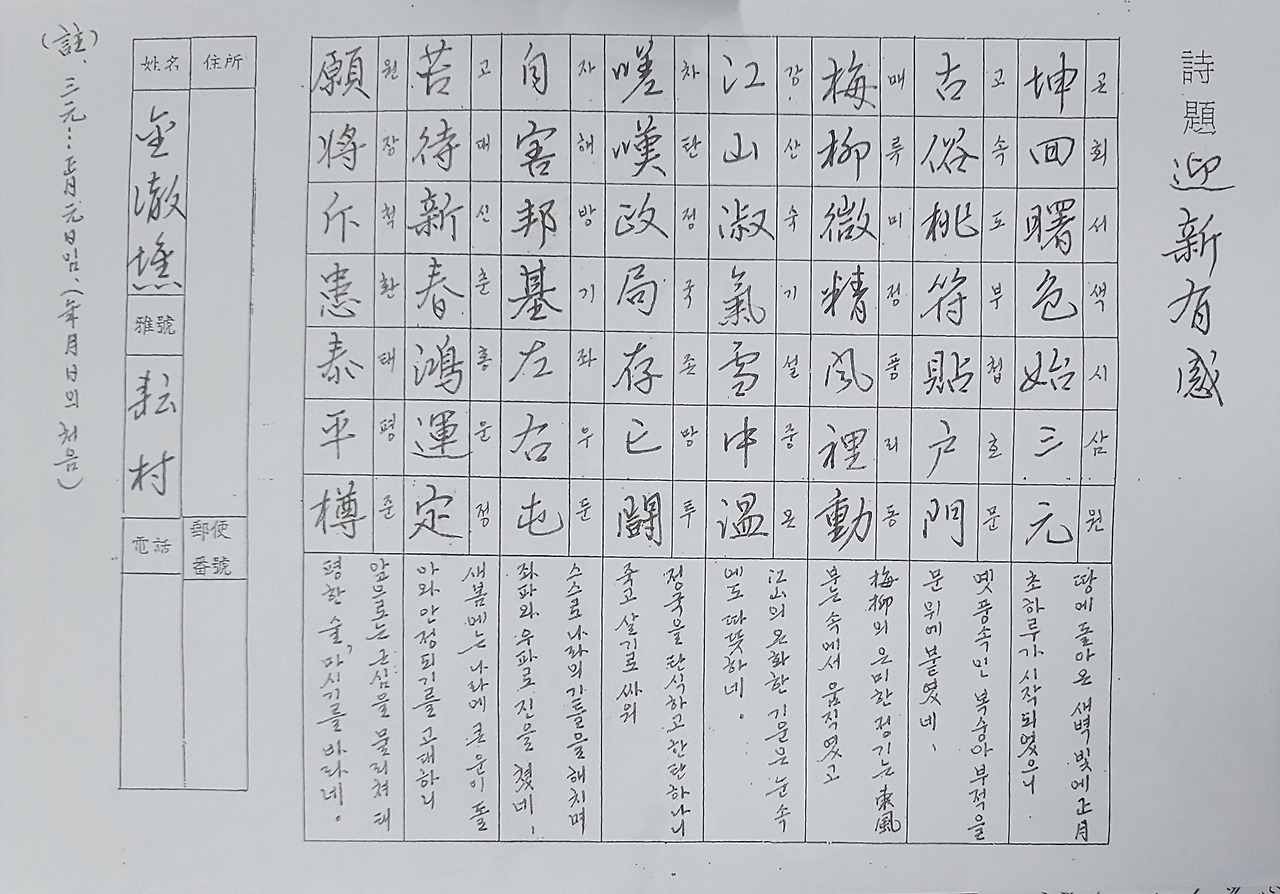 詩題 迎新有感
坤곤回회曙서色색始시三삼元원
땅에 돌아온 새벽빛에 正月
초하루가 시작되였으니
古고俗속桃도符부貼첩戶호門문
옛풍속인 복숭아 부적을
문위에 붙였네.
梅매柳류微미精정風풍裡리動동
梅柳의 은미한 정기는 東風
부는 속에서 움직였고
江강山산淑숙氣기雪설中중溫온
江山의 온화한 기운은 눈속
에도 따뜻하네.
嗟차嘆탄政정局국存존亡망鬪투
정국을 탄식하고 한탄하나니
죽고 살기로 싸워
自자害해邦방基기左좌右우屯둔
스스로 나라의 기틀을 해치며
좌파와 우파로 진을 쳤네.
苦고待대新신春춘鴻홍運운定정
새봄에는 나라에 큰 운이 돌
아와 안정되기를 고대하니
願원將장斥척患환泰태平평樽준
앞으로는 근심을 물리쳐 태
평한 술, 마시기를 바라네.
住所
郵便
番號
姓名 金澈
雅號 耘村
電話
(註、三元…正月元日임、(年月日의 처음)